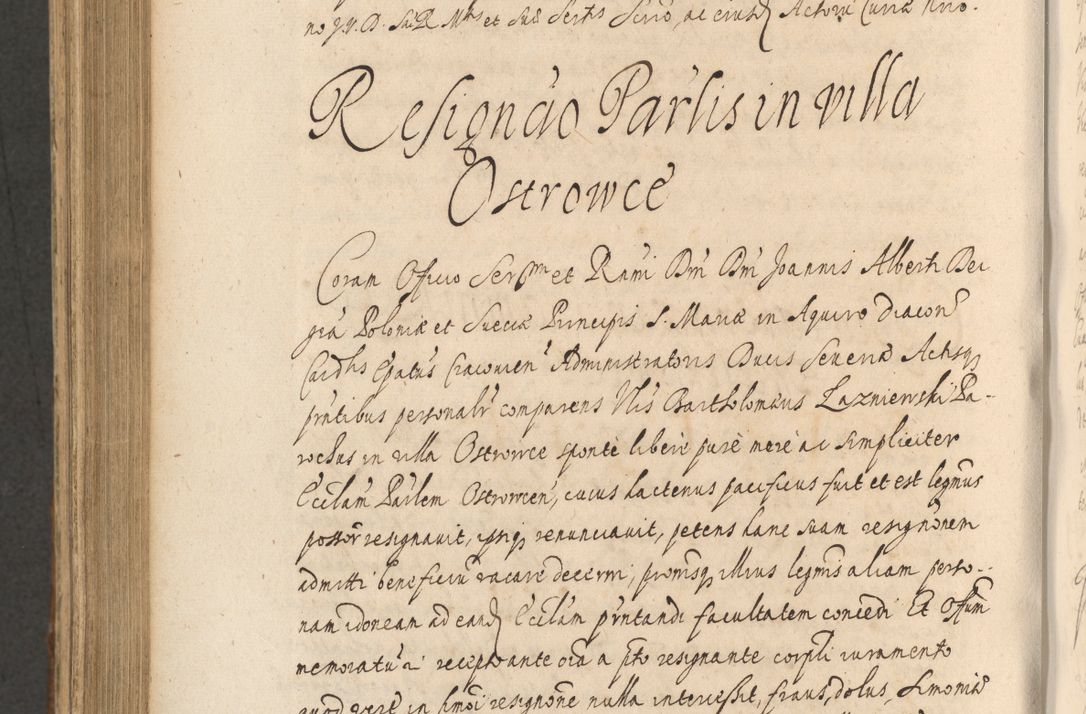 no J. V. D. Sac. R. Mtis et Suae Sertis Scrio, ac eiusd Actorum Curiae Nrio.
Resignã̀o Par̃lis in villa
Ostrowcè
Coram Officio Sermi et Rmi Dñi Dñi Joannis Alberti Dei
grã Poloniæ et Sueciæ Principis S. Mariæ in Aquiro Diacoñ
Cardlis Epatus Cracovien̄ Administratoris Ducis Severiæ Actisq
pr̃ntibus personalr̃ comparens Nlis Bartholomæus Lazniewski Pa-
rochus in villa Ostrowce spontè liberè purè merè ac simpliciter
Ecclãm Parlem Ostrowceñ, cuius hactenus pacificus fuit et est legm̃us
possor̃ resignavit, ipsiq renunciavit, petens hanc suam resignõnem
admitti beneficiũ vacare decerni, promisq illius legmis aliam perso-
nam idoneam ad eand Ecclãm pr̃ntandi facultatem concedi Et Offium
memoratũ recepto ante oiã a pto resignante corpli iuramento
quod verè in hm̃oi resignõne nulla intercessit, fraus, dolus, simoniæ